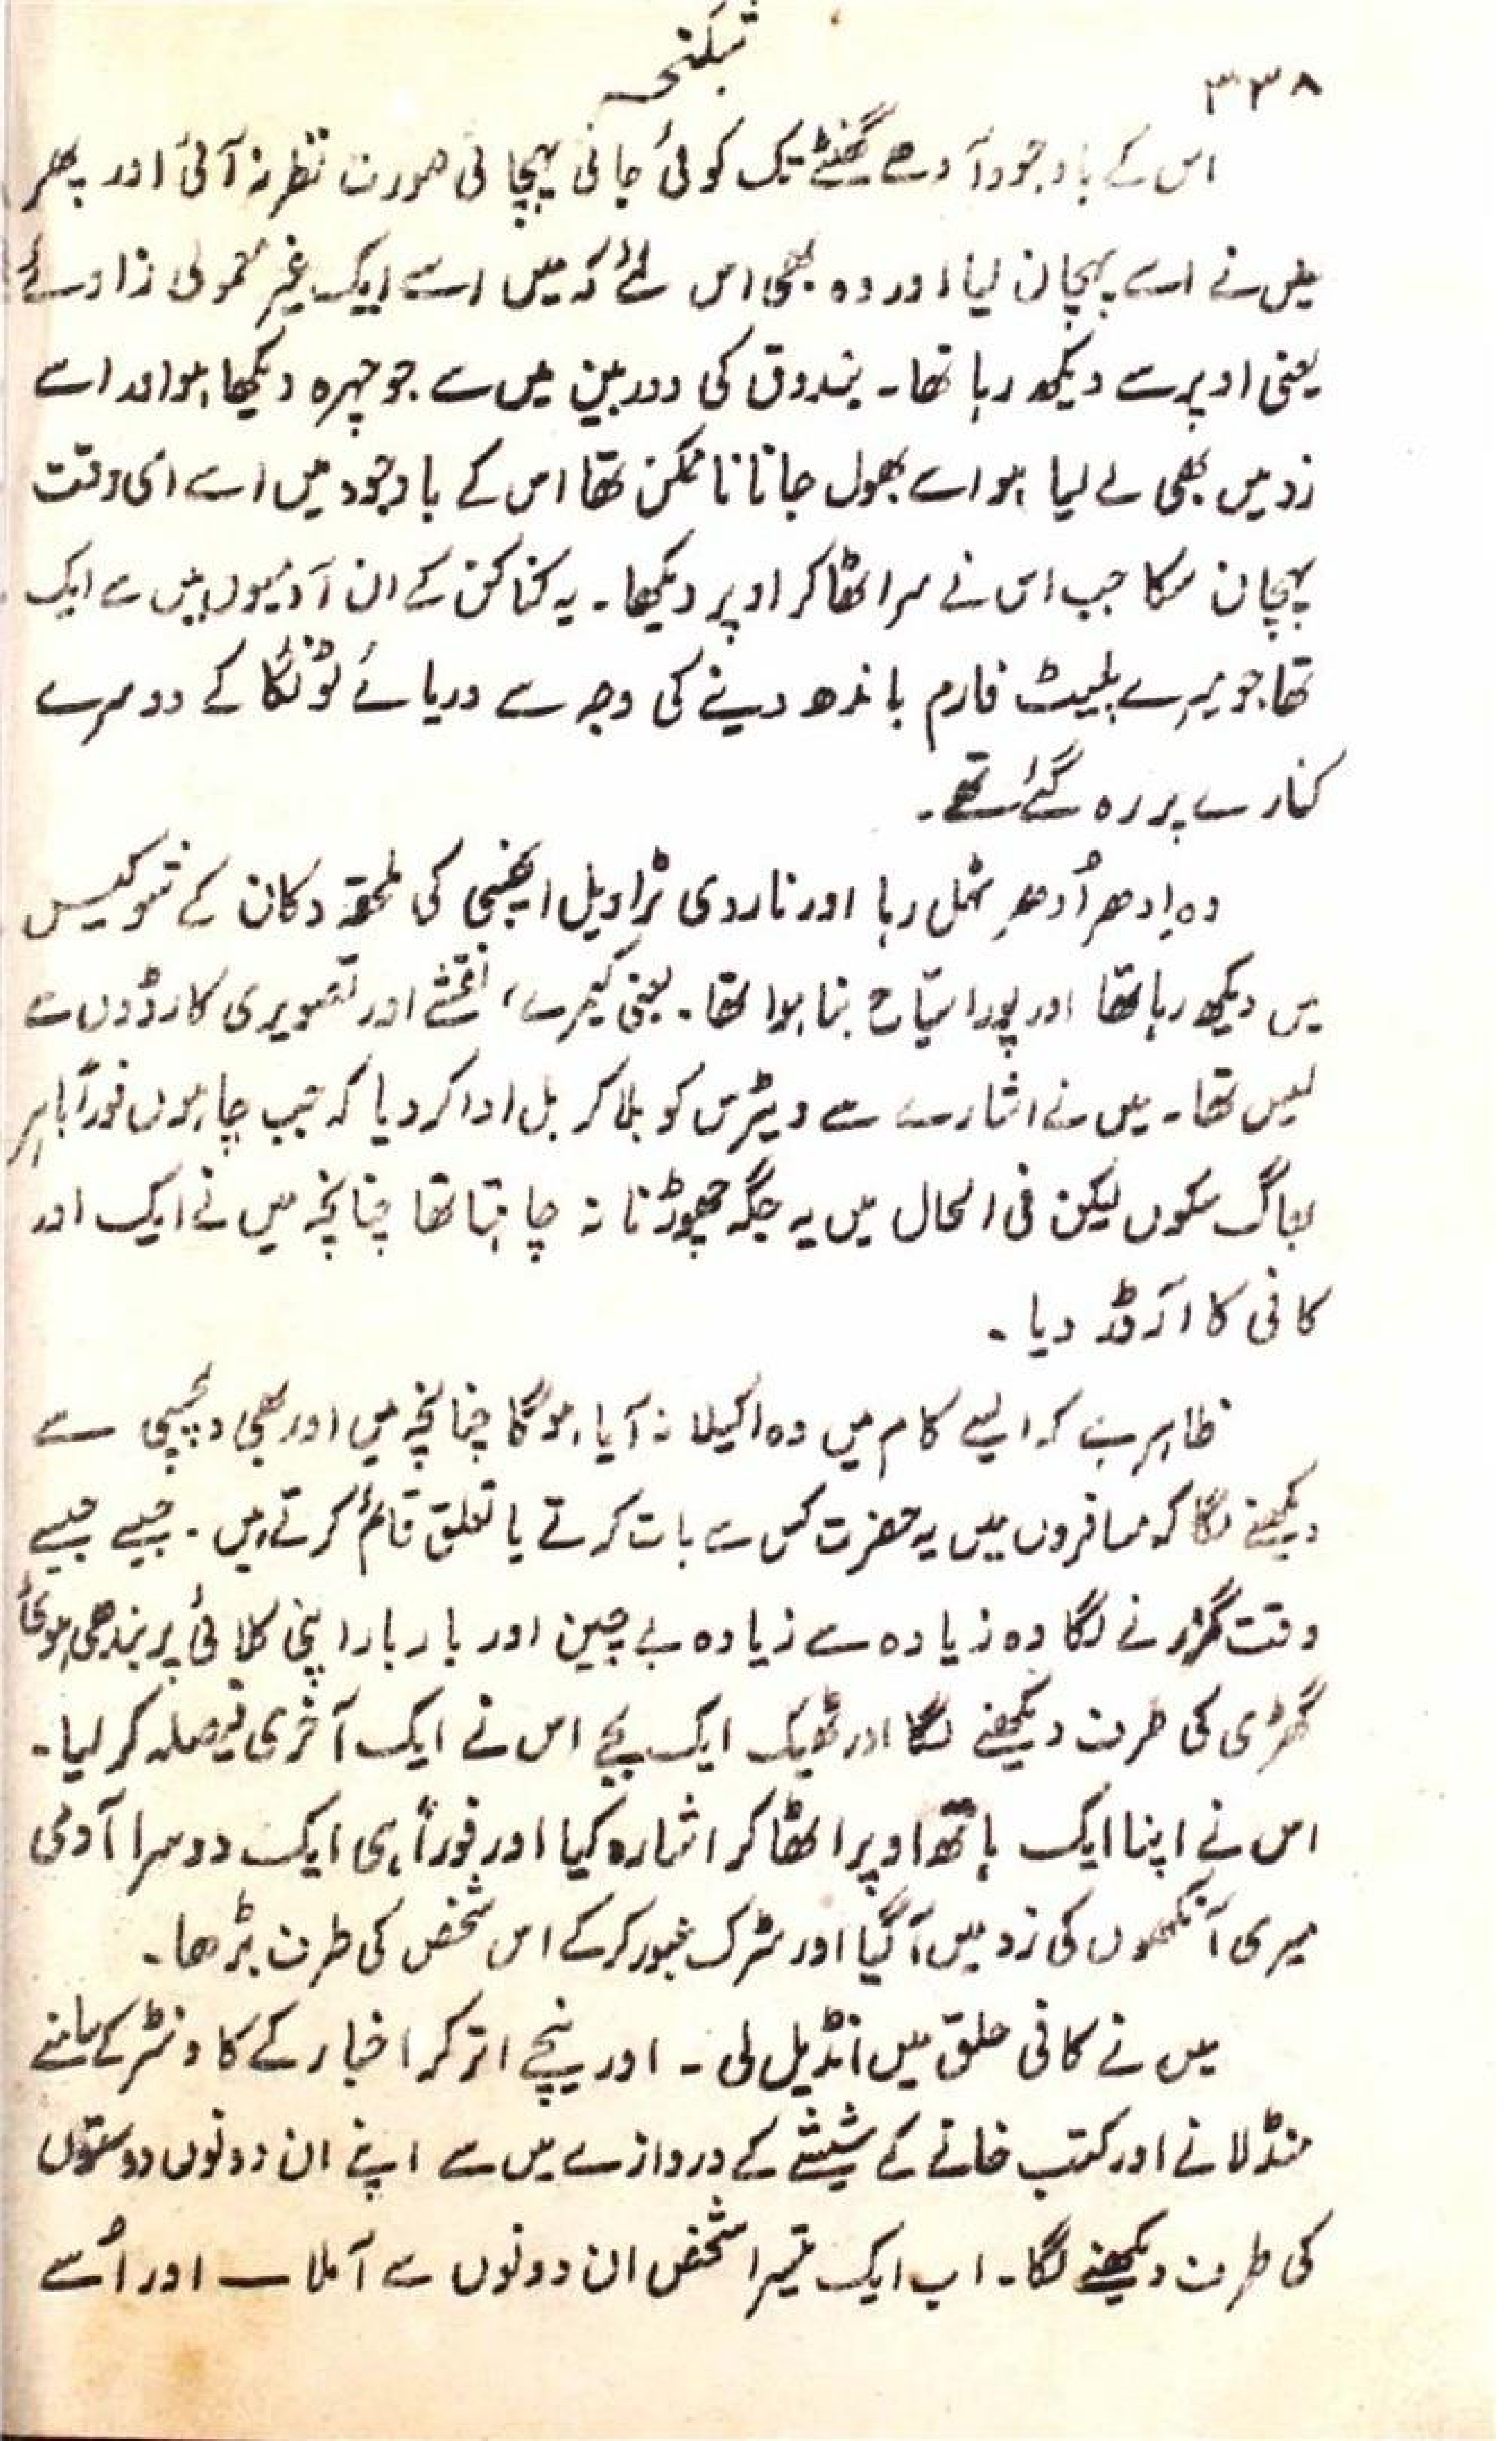 شکنجہ
۳۳۸
اس کے باوجود آدھے گھنٹے تک کوئی جانی پہچانی صورت نظر نہ آئی اور پھر
میں نے اسے پہچان لیا اور وہ بھی اس لئے کہ میں اسے ایک غیر معمولی زاوئے
یعنی اوپر سے دیکھ رہا تھا۔ بندوق کی دوربین میں سے جو چہرہ دیکھا ہو اور اسے
زد میں بھی لے لیا ہو اسے بھول جانا ناممکن تھا اس کے باوجود میں اسے اسی وقت
پہچان سکا جب اس نے سر اٹھا کر اوپر دیکھا۔ یہ کناکن کے ان آدمیوں میں سے ایک
تھا جو میرے پلیٹ فارم باندھ دینے کی وجہ سے دریائے لونگا کے دوسرے
کنارے پر رہ گئے تھے۔
وہ اِدھر اُدھر ٹہل رہا اور ناردی ٹراویل ایجنسی کی ملحقہ دکان کے شوکیس
میں دیکھ رہا تھا اور پورا سیّاح بنا ہوا تھا۔ یعنی کیمرے، نقشے اور تصویری کارڈوں سے
لیس تھا۔ میں نے اشارے سے ویٹرس کو بلا کر بل ادا کر دیا کہ جب چاہوں فوراً باہر
بھاگ سکوں لیکن فی الحال میں یہ جگہ چھوڑنا نہ چاہتا تھا چنانچہ میں نے ایک اور
کافی کا آرڈر دیا۔
ظاہر ہے کہ ایسے کام میں وہ اکیلا نہ آیا ہو گا چنانچہ میں اور بھی دلچسپی سے
دیکھنے لگا کہ مسافروں میں یہ حضرت کس سے بات کرتے یا تعلق قائم کرتے ہیں۔ جیسے جیسے
وقت گزرنے لگا وہ زیادہ سے زیادہ بے چین اور بار بار اپنی کلائی پر بندھی ہوئی
گھڑی کی طرف دیکھنے لگا اور ٹھیک ایک بجے اس نے ایک آخری فیصلہ کر لیا۔
اس نے اپنا ایک ہاتھ اوپر اٹھا کر اشارہ کیا اور فوراً ہی ایک دوسرا آدمی
میری آنکھوں کی زد میں آ گیا اور سڑک عبور کر کے اس شخص کی طرف بڑھا۔
میں نے کافی حلق میں انڈیل لی۔ اور نیچے اتر کر اخبار کے کاونٹر کے سامنے
منڈلانے اور کتب خانے کے شیشے کے دروازے میں سے اپنے ان دونوں دوستوں
کی طرف دیکھنے لگا۔ اب ایک تیسرا شخص ان دونوں سے آ ملا — اور اُسے